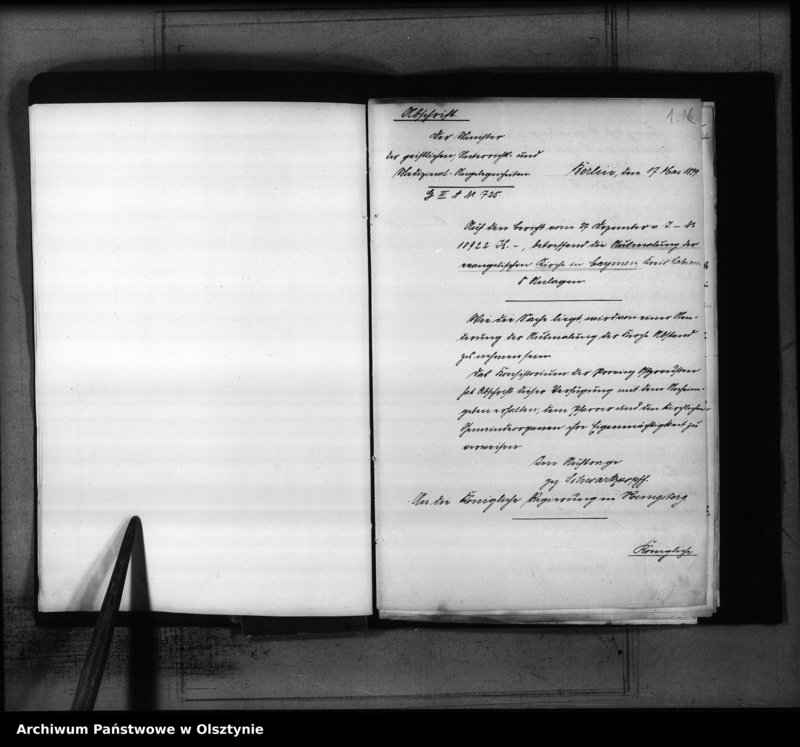 Abschrift.
1 16
Der Minister
der geistlichen, Unterrichts- und
Medizinal-Angelegenheiten
Berlin, den 17 Mai
G II A № 725.
Auf den Bericht vom 27 Dezember v. J. – №
10922 K. –, betreffend die Ausmalung der
evangelischen Kirche in Caymen, Kreis Labiau.
5 Anlagen
Wie die Sache liegt, wird von einer Aen-
derung der Ausmalung der Kirche Abstand
zu nehmen sein.
Das Konsistorium der Provinz Ostpreußen
hat Abschrift dieser Verfügung mit dem Anheim-
geben erhalten, dem Pfarrer und den kirchlichen
Gemeindeorganen ihre Eigenmächtigkeit zu
verweisen
Im Auftrage
gez. Schwartzkopff.
An die Königliche Regierung in Koenigsberg
Königliche
Archiwum Państwowe w Olsztynie